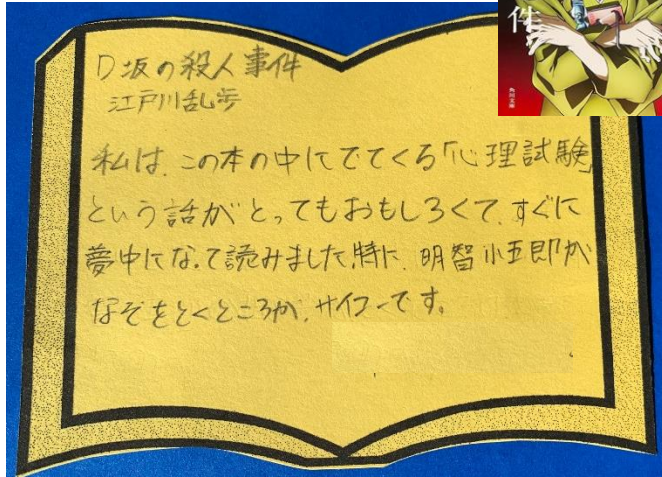 D坂の殺人事件
江戸川乱歩
私は、この本の中にでてくる「心理試験」
という話がとってもおもしろくて、すぐに
夢中になって読みました。特に、明智小五郎が
なぞをとくところが、サイコーです。
件
角川文庫